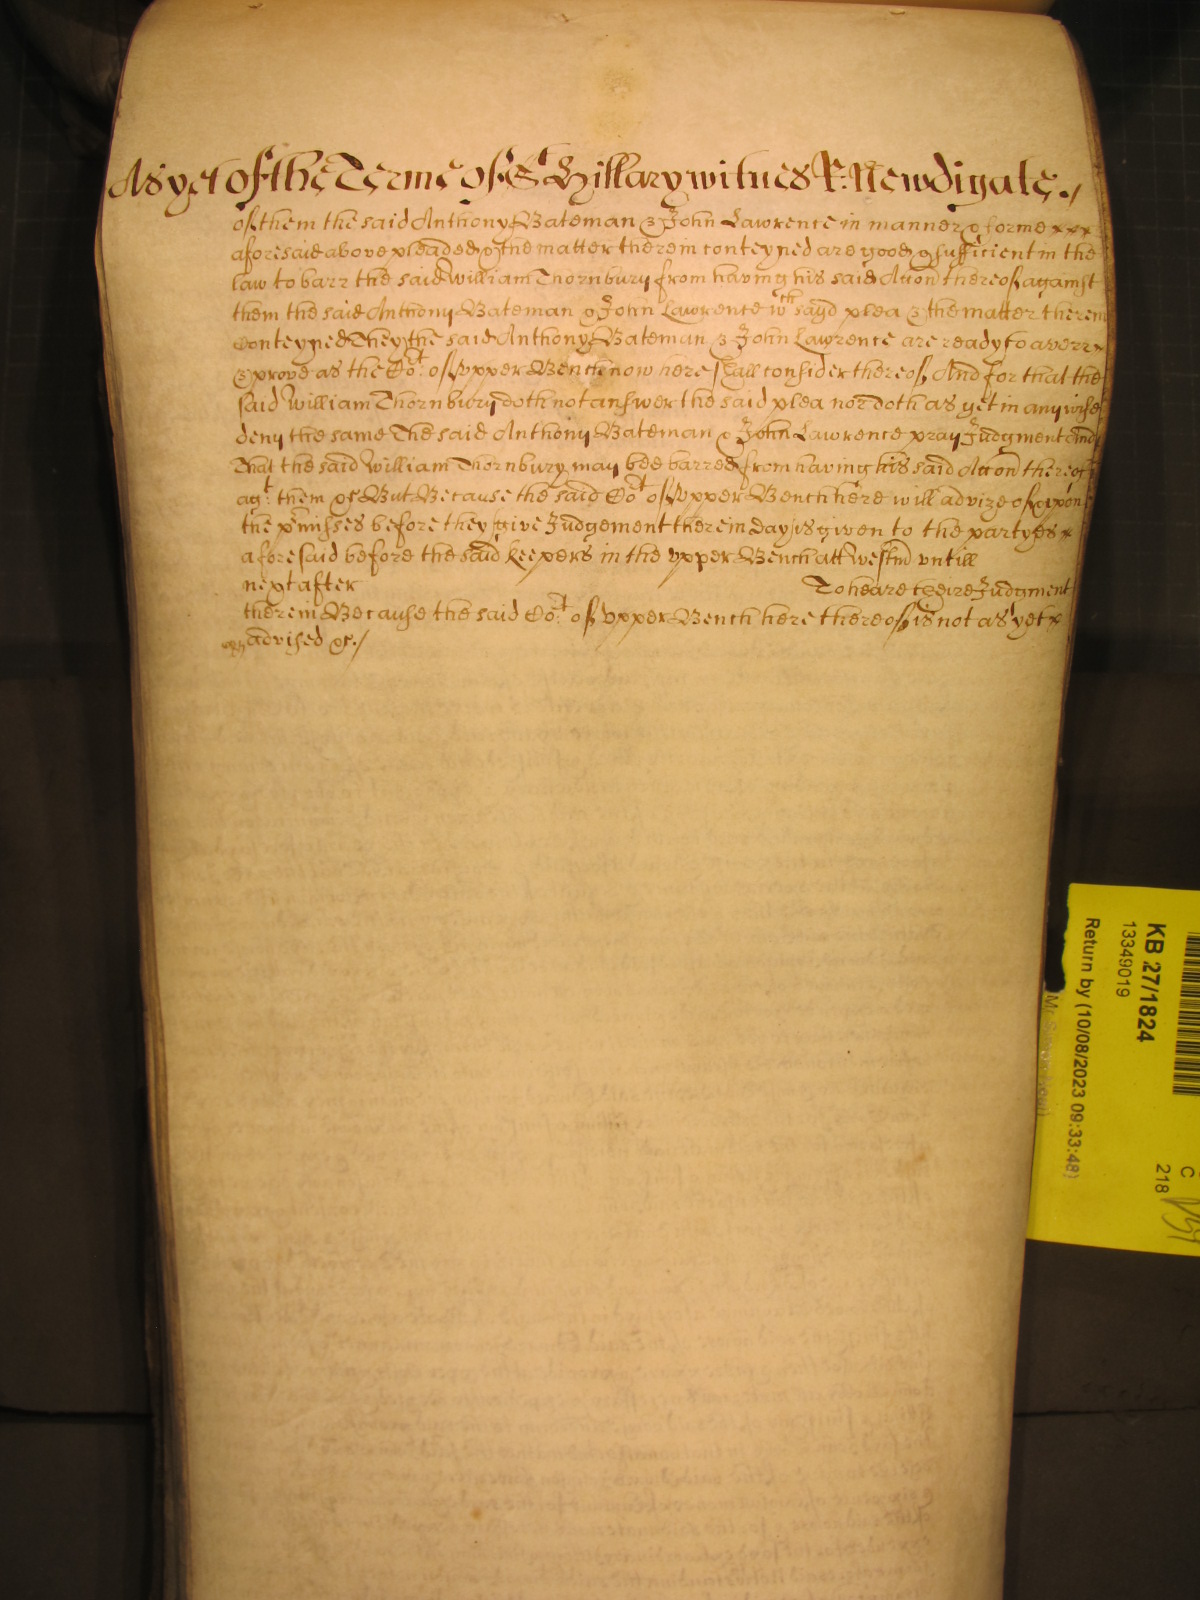 As yet of the Terme of St Hillary witnes R: Newdigate ./
of them the said Anthony Bateman & John Lawrence in manner & forme xxx
aforesaid above pleaded & the matter therein conteyned are good & sufficient in the
law to barr the said William Thornbury from having his said Accon thereof against
them the said Anthony Bateman & John Lawrence wch sayd plea & the matter therein
Conteyned They the said Anthony Bateman & John Lawrence are ready to averr x
& prove as the Cot: of Upper Bench now here shall consider thereof, And for that the
said William Thornbury doth not answer the said plea nor doth as yet in any wise
deny the same The said Anthony Bateman & John Lawrence pray Judgment And
That the said William Thornbury may bee barred from having his said Accon thereof
agt: them &c. But Because the said Cot of Upper Bench here will advize of & upon
the pmisses before they give Judgement therein Day is given to the partyes x
aforesaid before the said keepers in the upper Bench att Westm untill
next after To heare theire Judgment
therein Because the said Cot: of Upper Bench here thereof is not as yet x
advised &c./
KB 27/1824
13349019
Return by (10/08/2023 09:33:48)
C
218